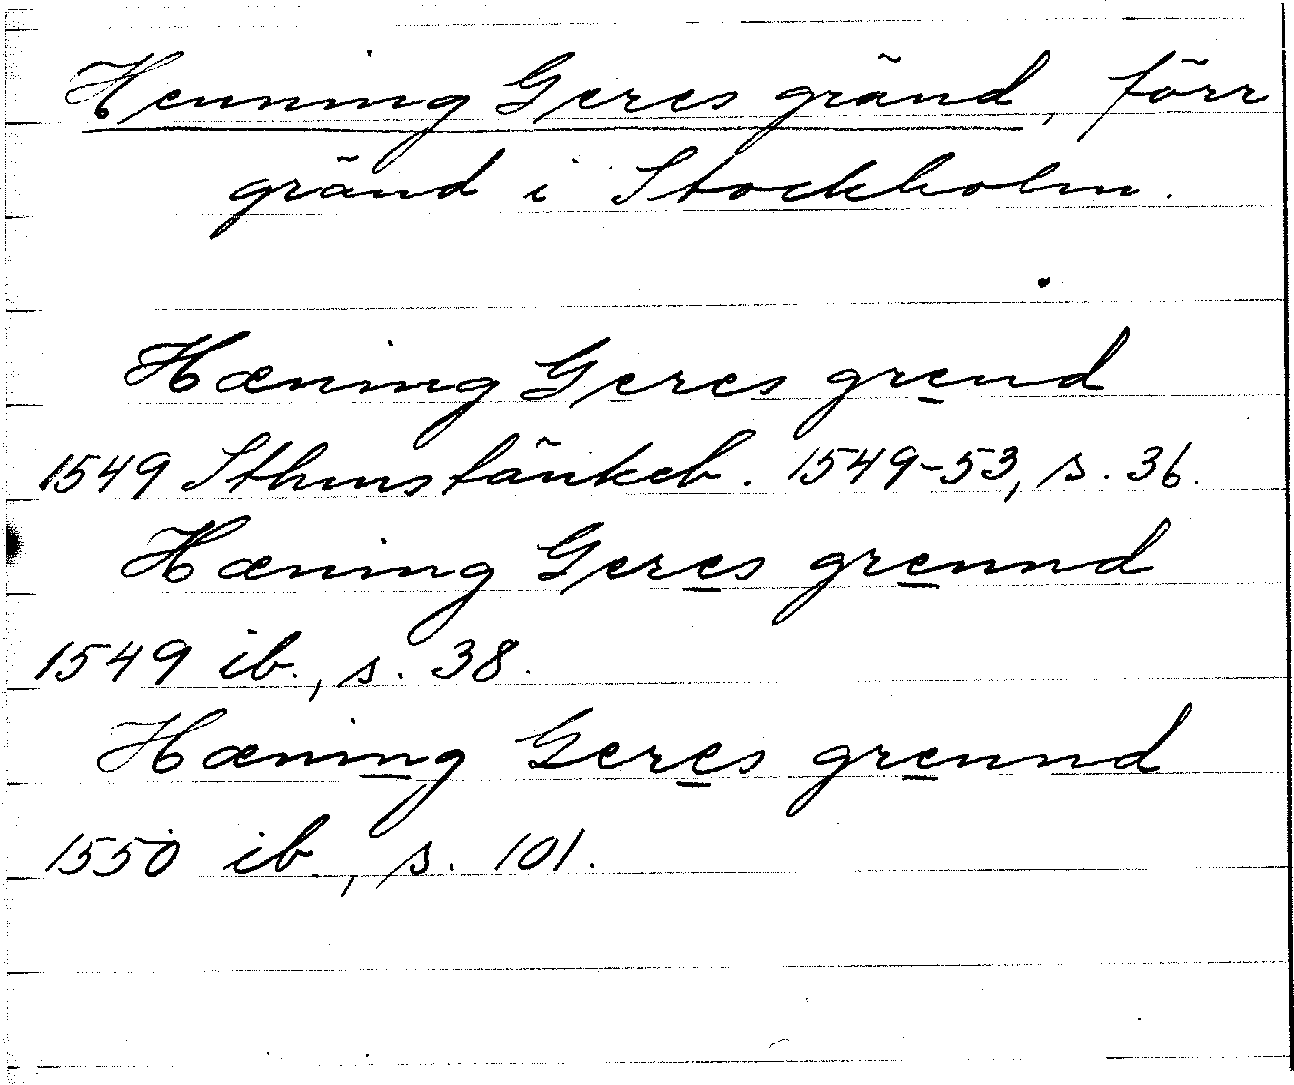 Henning Geres gränd, förr
gränd i Stockholm.
Hæning Geres grend
1549 Sthms tänkeb. 1549-53, s. 36.
Hæning Geres grennd
1549 ib., s. 38.
Hæning Geres grennd
1550 ib., s. 101.